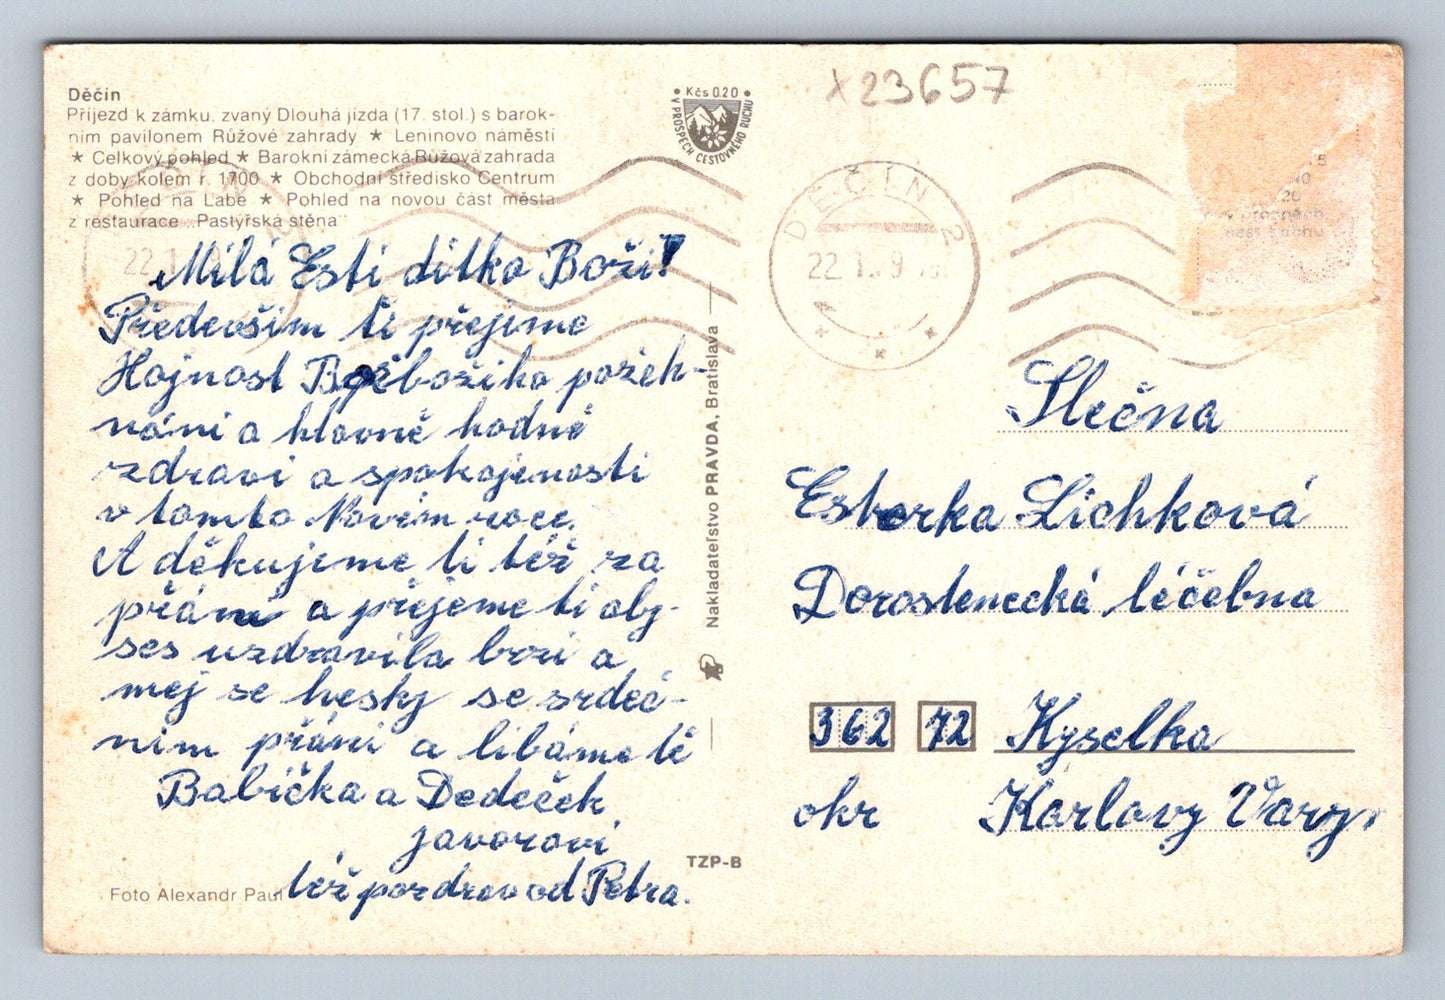 Děčín
Příjezd k zámku, zvaný Dlouhá jízda (17. stol.) s barok-
ním pavilonem Růžové zahrady ★ Leninovo náměstí
★ Celkový pohled ★ Barokní zámecká Růžová zahrada
z doby kolem r. 1700 ★ Obchodní středisko Centrum
★ Pohled na Labe ★ Pohled na novou část města
z restaurace „Pastýřská stěna“
Milá Esti dítko Boží!
Především ti přejeme
Hojnost Božího požeh-
nání a hlavně hodně
zdraví a spokojenosti
v tomto Novém roce.
A děkujeme ti též za
přání a přejeme ti aby-
ses uzdravila brzi a
mej se hesky se srdeč-
ním přání a líbáme tě
Babička a Dedeček
Javorovi
též pozdrav od Petra.
Foto Alexandr Paul
Nakladateľstvo PRAVDA, Bratislava
TZP-B
Kčs 0.20
V PROSPECH CESTOVNÉHO RUCHU
x23657
DĚČÍN 2
22.1.
Slečna
Esterka Lichková
Dorostenecká léčebna
362 72 Kyselka
okr Karlovy Vary